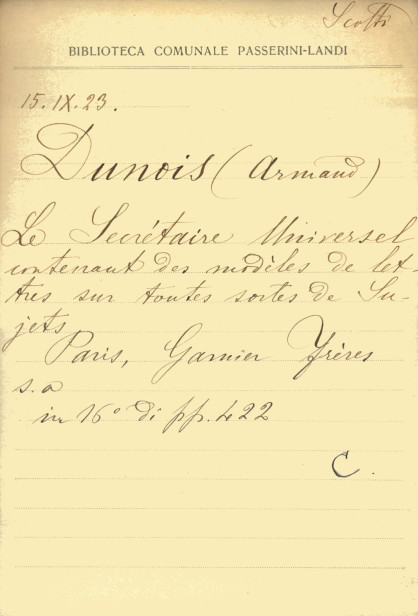 Scotti
BIBLIOTECA COMUNALE PASSERINI-LANDI
15.IX.23.
Dunois (Armand)
Le Secrétaire Universel
contenant des modèles de let-
tres sur toutes sortes de Su-
jets
Paris, Garnier Frères
s.a
in 16° di pp. 422
C.